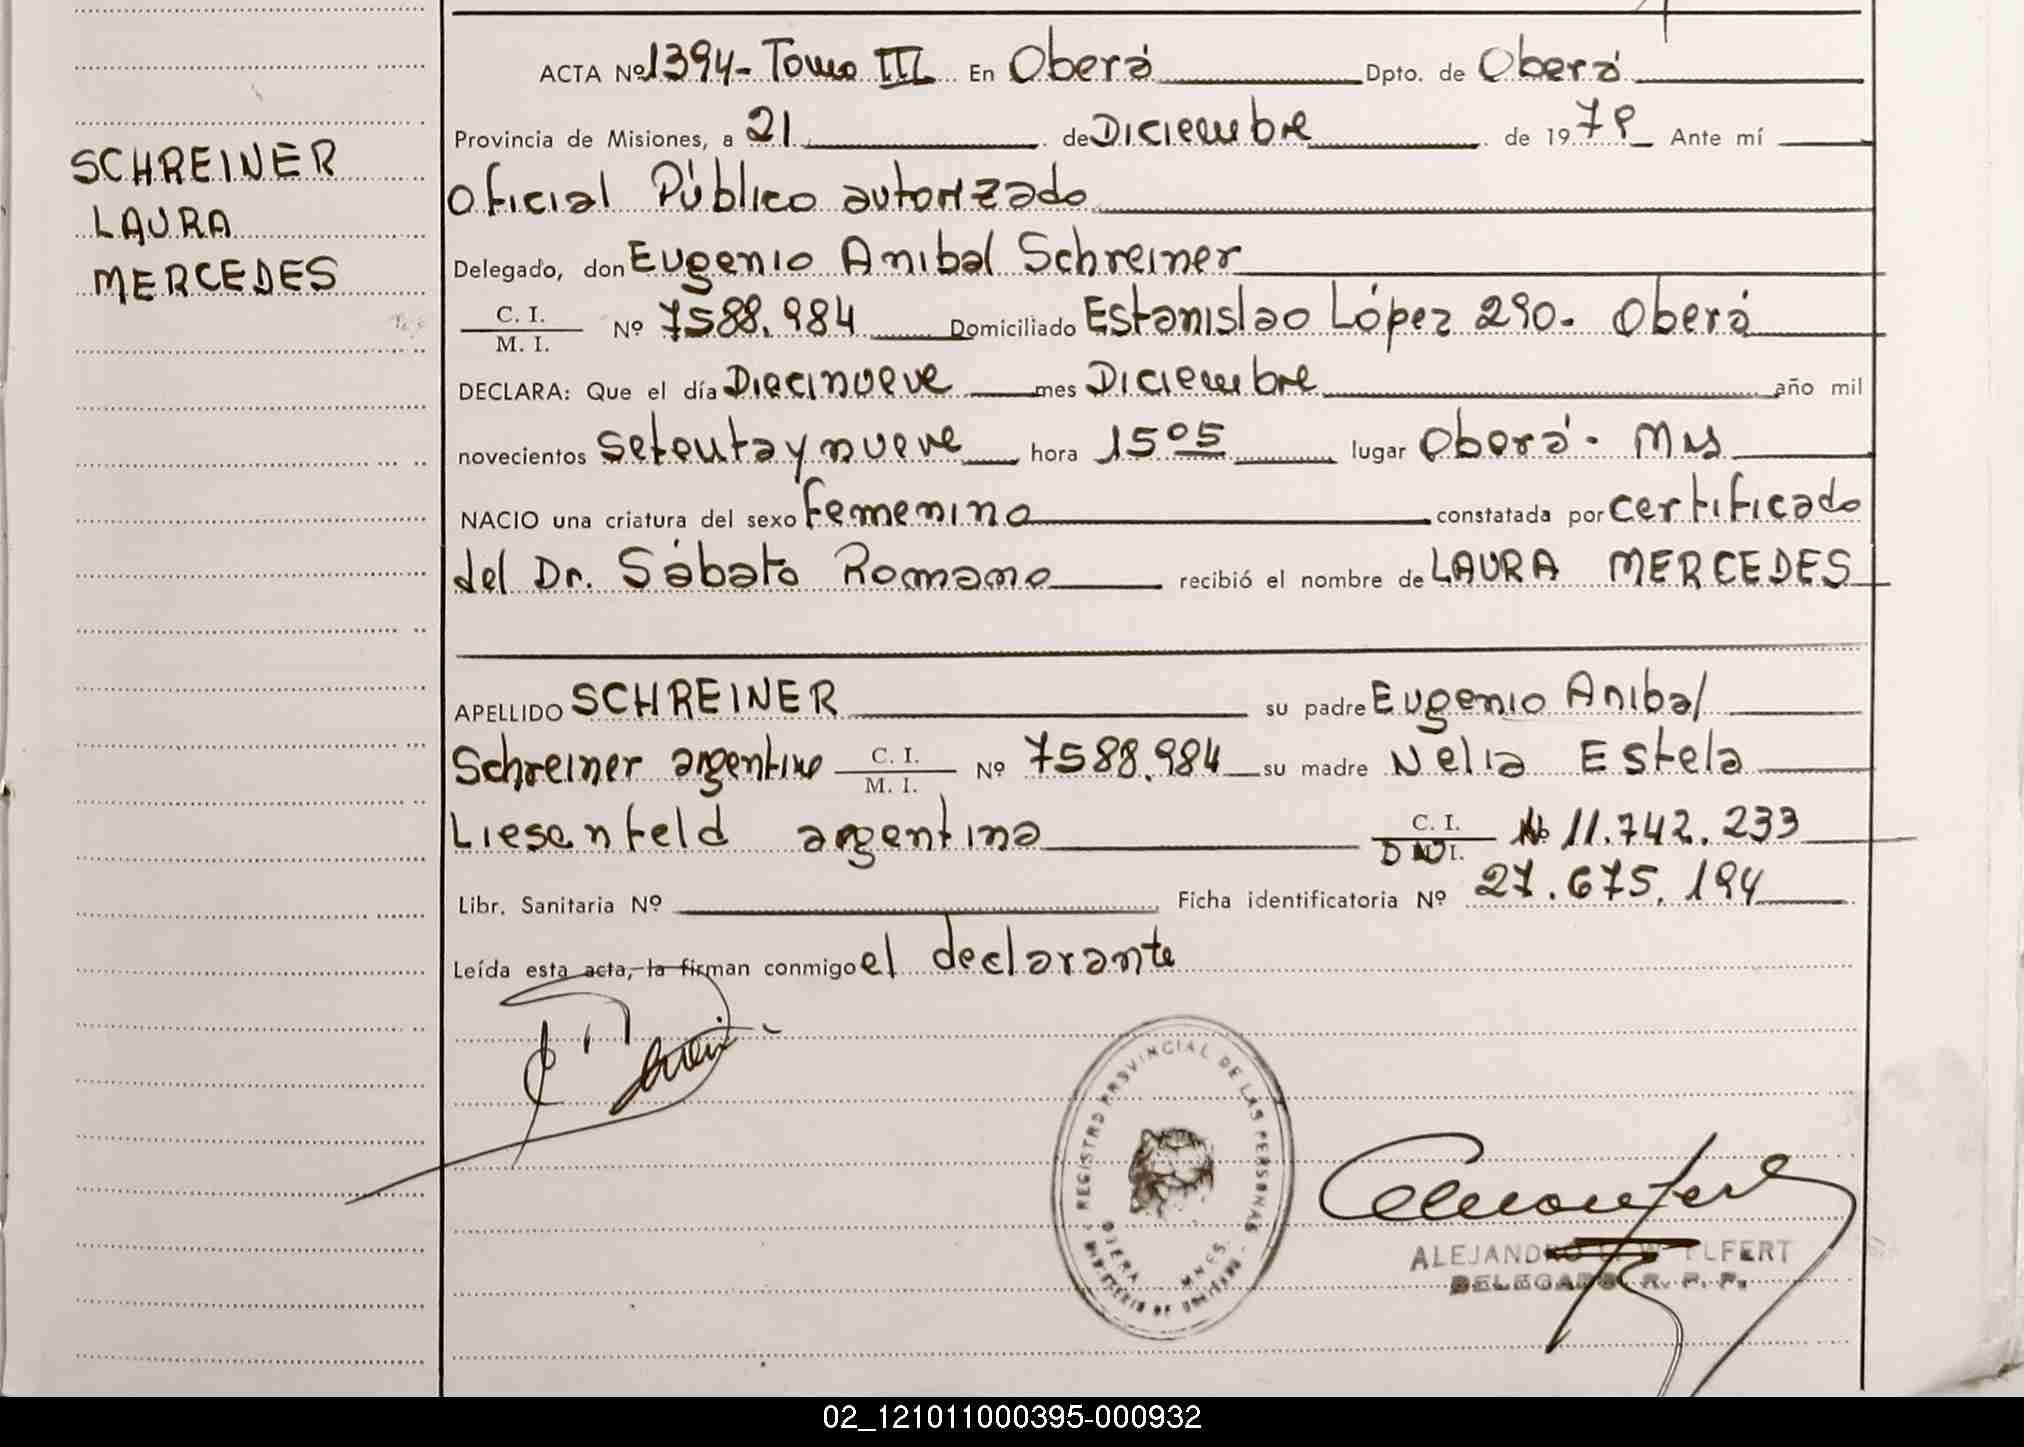 SCHREINER
LAURA
MERCEDES
ACTA Nº 1394- Tomo III En Oberá Dpto. de Oberá
Provincia de Misiones, a 21 de Diciembre de 1979 Ante mí
Oficial Público autorizado
Delegado, don Eugenio Anibal Schreiner
C. I. / M. I. Nº 7588.984 Domiciliado Estanislao López 290- Oberá
DECLARA: Que el día Diecinueve mes Diciembre año mil
novecientos setenta y nueve hora 15 05 lugar Oberá- Mns
NACIO una criatura del sexo femenino constatada por certificado
del Dr. Sábato Romano recibió el nombre de LAURA MERCEDES
APELLIDO SCHREINER su padre Eugenio Anibal
Schreiner argentino C. I. / M. I. Nº 7588.984 su madre Nelia Estela
Liesenfeld argentina C. I. / DNI. Nº 11.742.233
Libr. Sanitaria Nº Ficha identificatoria Nº 27.675.194
Leída esta acta, la firman conmigo el declarante
REGISTRO PROVINCIAL DE LAS PERSONAS
MINISTERIO DE GOBIERNO
OBERA MNES.
ALEJANDRO WELFERT
DELEGADO R. P. P.
02_121011000395-000932